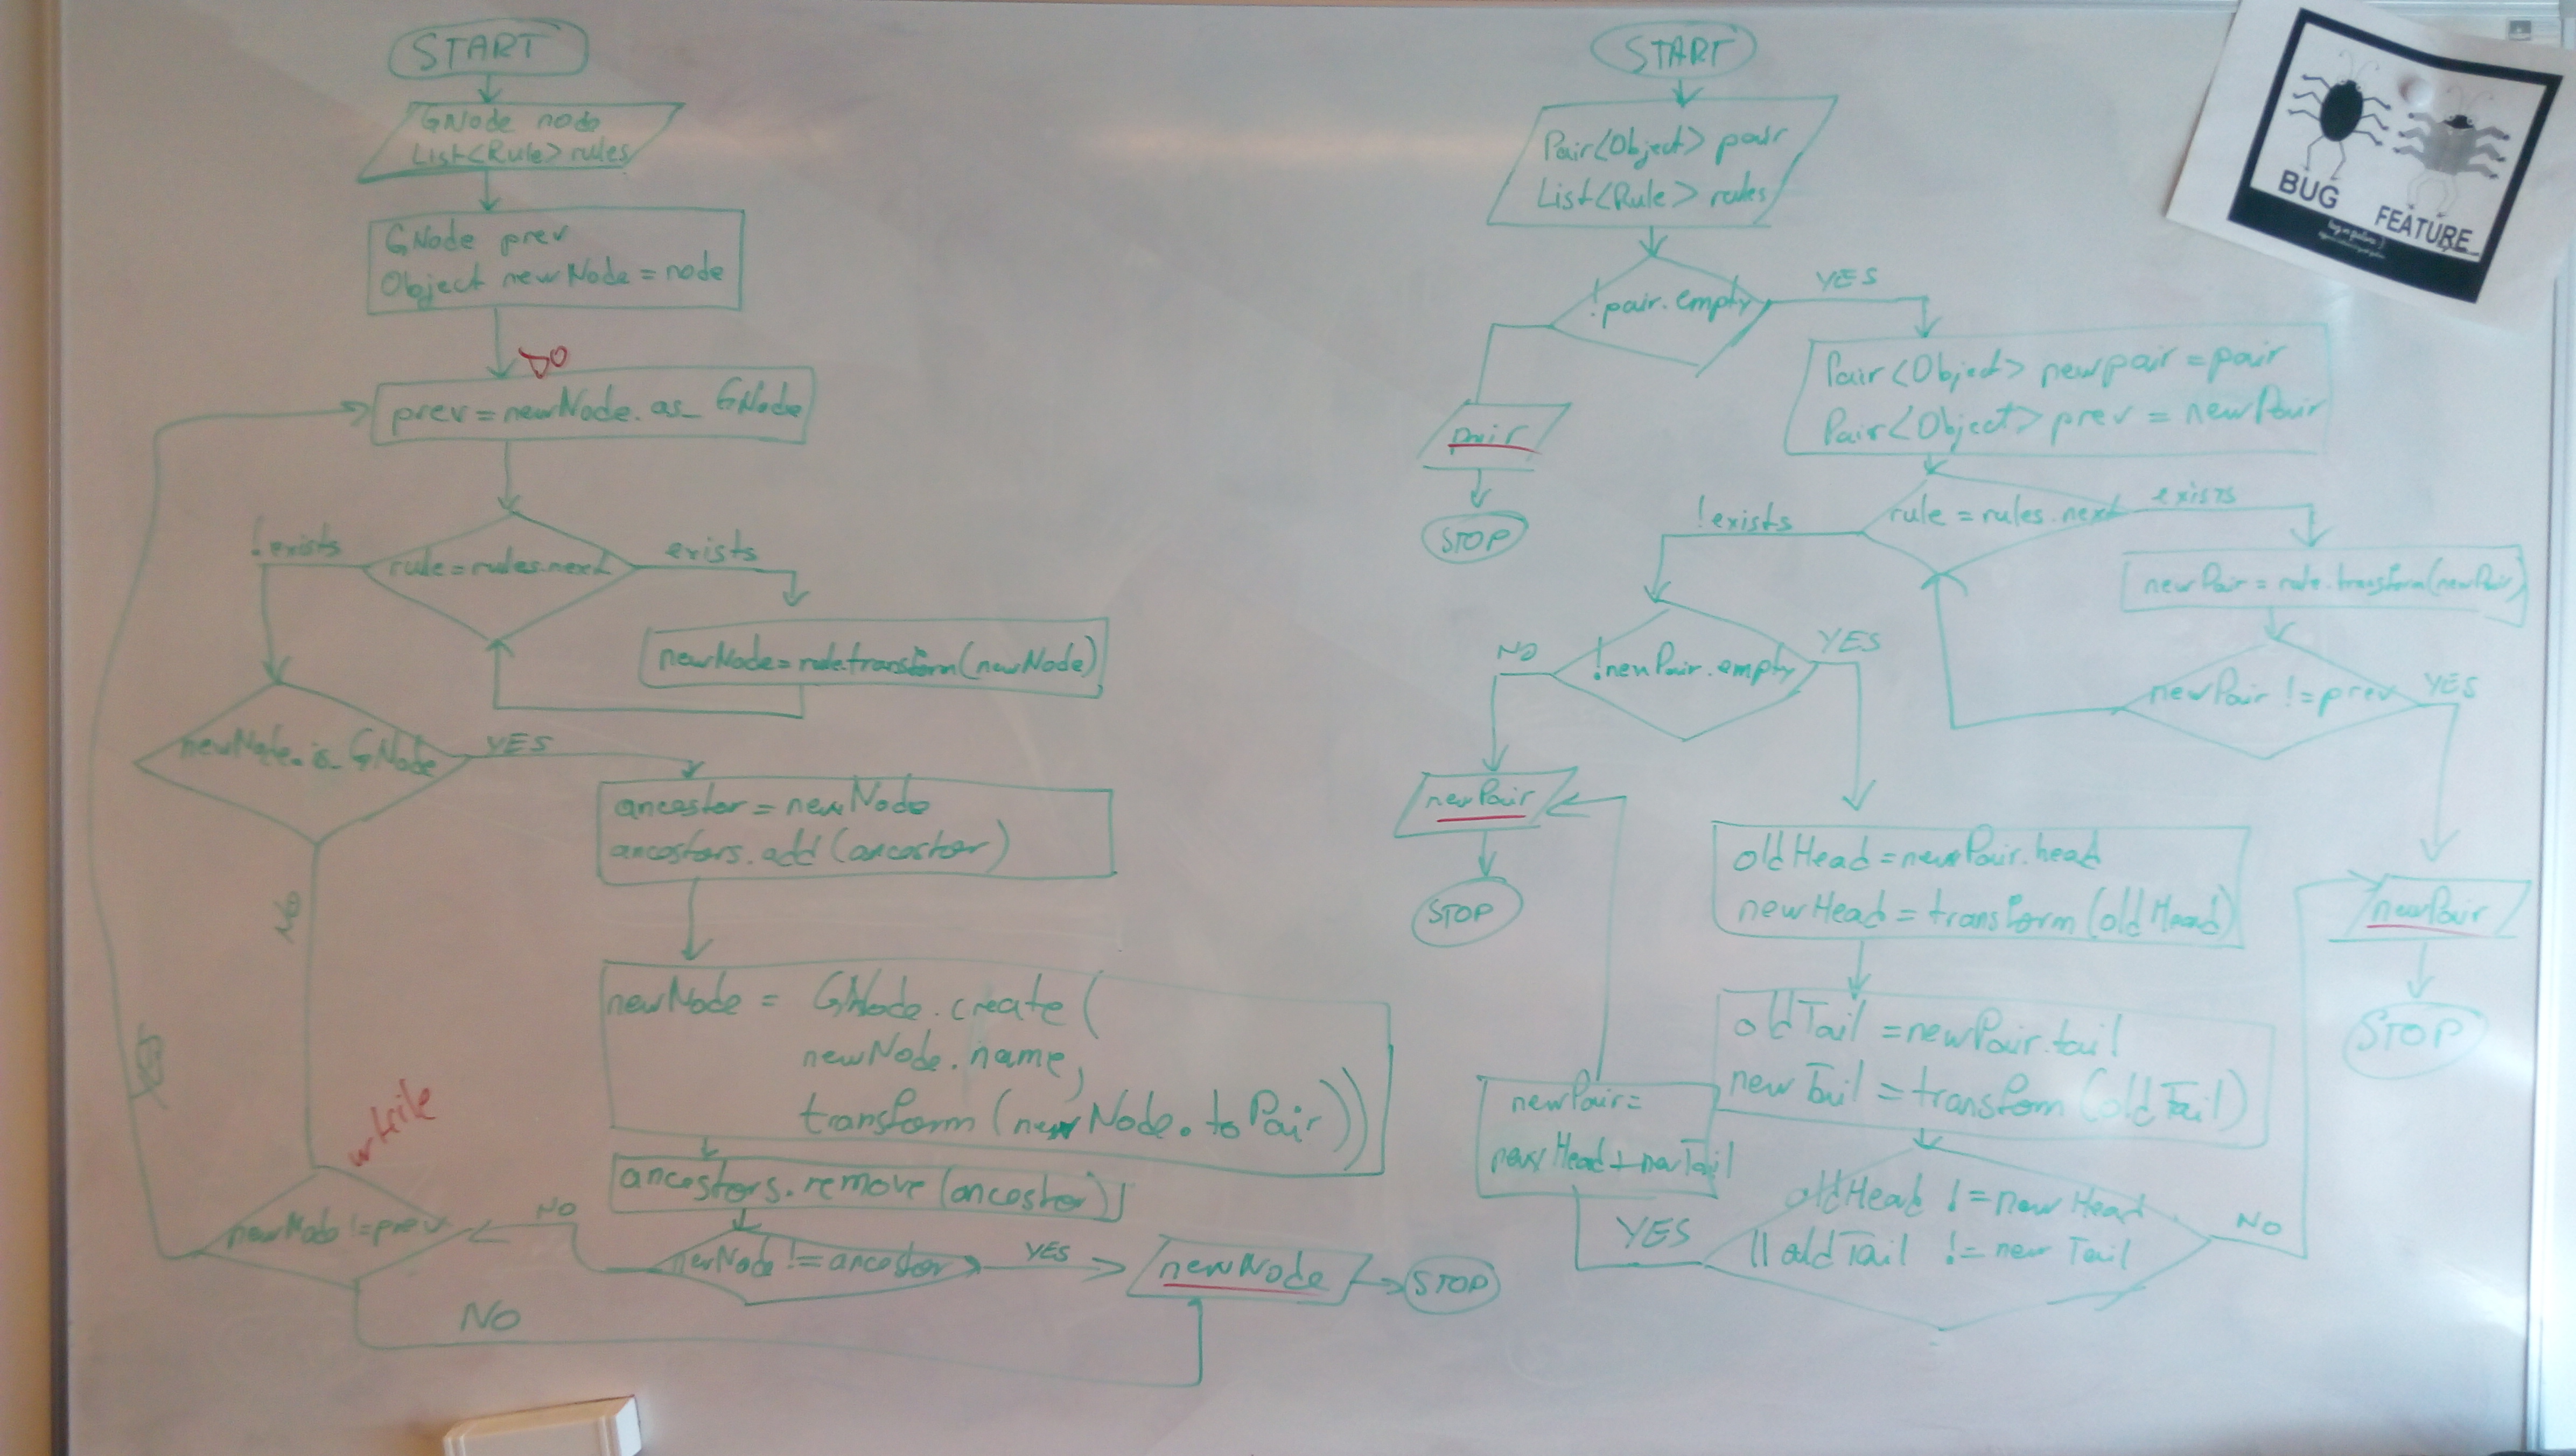 START
GNode node
List<Rule> rules
GNode prev
Object newNode = node
DO
prev = newNode.as_GNode
!exists
rule = rules.next
exists
newNode = rule.transform(newNode)
newNode.is_GNode
YES
ancestor = newNode
ancestors.add(ancestor)
newNode = GNode.create(
newNode.name,
transform(newNode.toPair))
ancestors.remove(ancestor)
while
newNode != prev
NO
newNode != ancestor
YES
newNode
STOP
NO
START
Pair<Object> pair
List<Rule> rules
!pair.empty
YES
pair
STOP
Pair<Object> newpair = pair
Pair<Object> prev = newPair
!exists
rule = rules.next
exists
newPair = rule.transform(newPair)
newPair != prev
YES
NO
!newPair.empty
YES
newPair
STOP
oldHead = newPair.head
newHead = transform(oldHead)
oldTail = newPair.tail
newTail = transform(oldTail)
newPair =
newHead + newTail
YES
oldHead != newHead
|| oldTail != newTail
NO
newPair
STOP
BUG
FEATURE